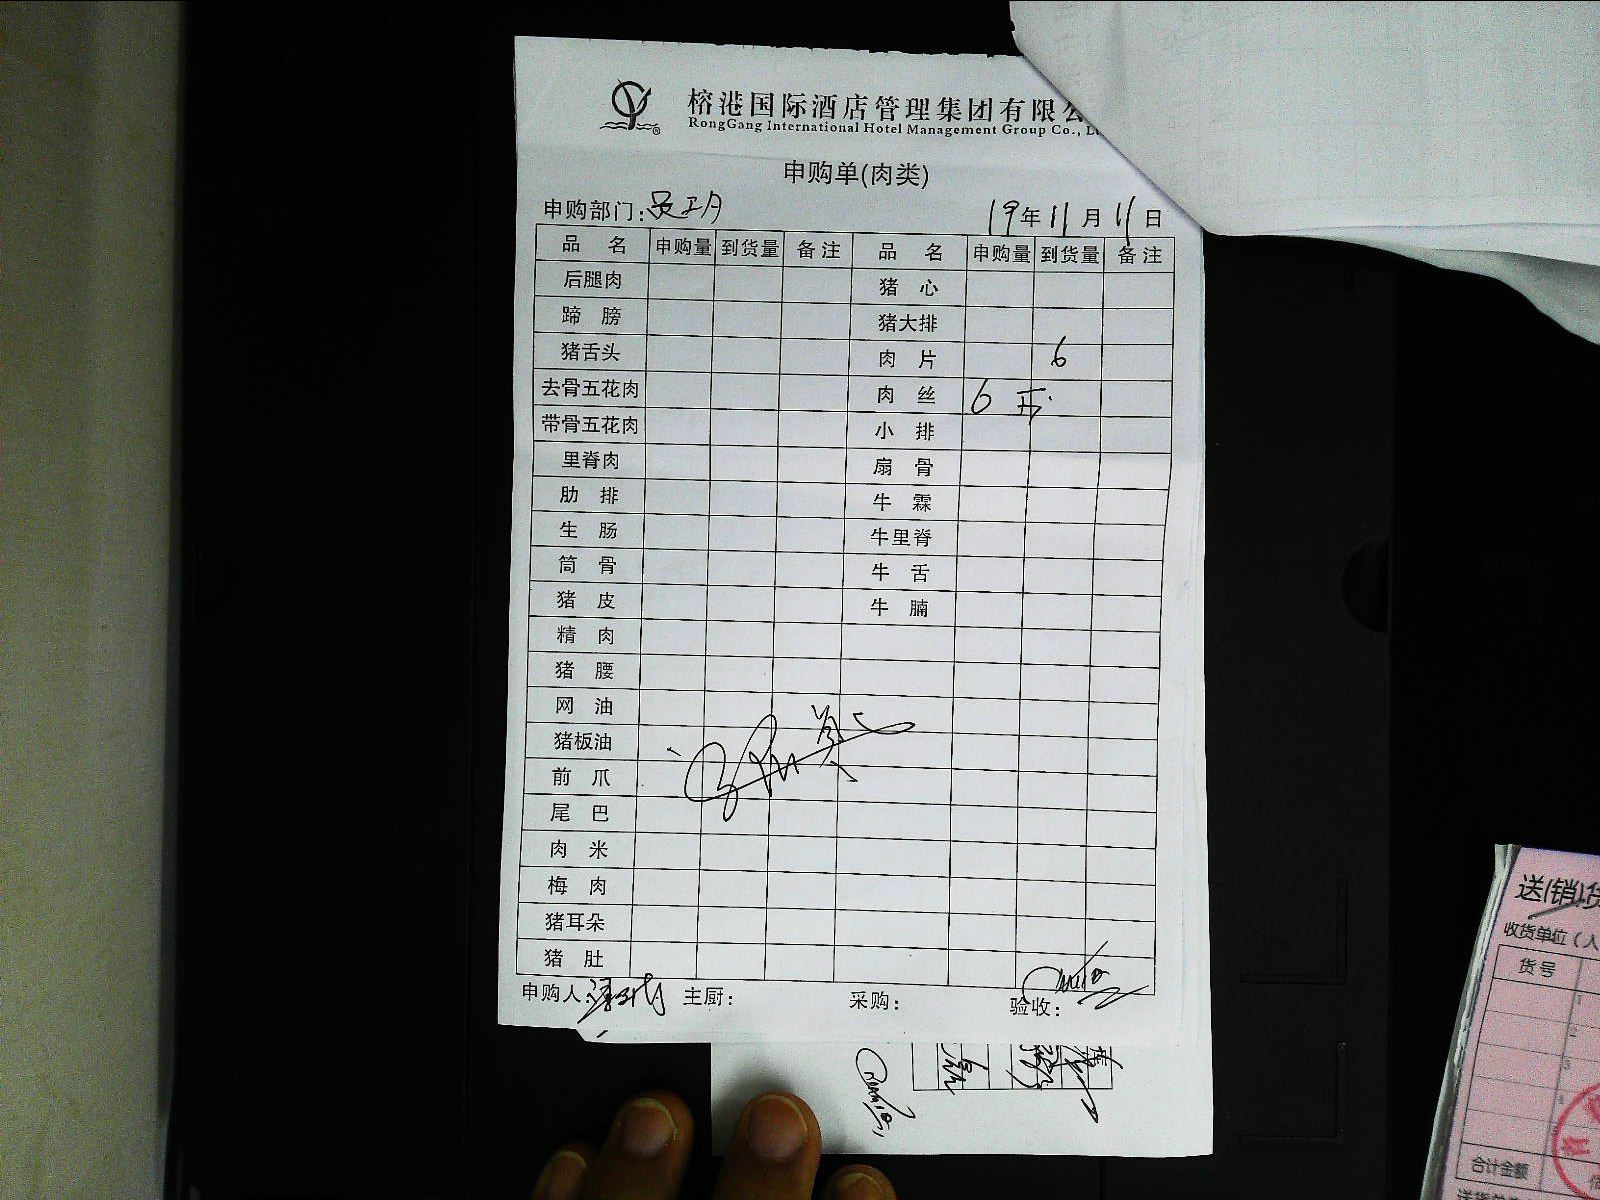 榕港国际酒店管理集团有限公
RongGang International Hotel Management Group Co.,
申购单(肉类)
申购部门:员工
19年11月11日
品 名 申购量 到货量 备注 品 名 申购量 到货量 备注
后腿肉 猪 心
蹄 膀 猪大排
猪舌头 肉 片 6
去骨五花肉 肉 丝 6 斤
带骨五花肉 小 排
里脊肉 扇 骨
肋 排 牛 霖
生 肠 牛里脊
筒 骨 牛 舌
猪 皮 牛 腩
精 肉
猪 腰
网 油
猪板油
前 爪
尾 巴
肉 米
梅 肉
猪耳朵
猪 肚
申购人: 主厨: 采购: 验收:
送(销)货
收货单位(人
货号
1
2
3
4
合计金额